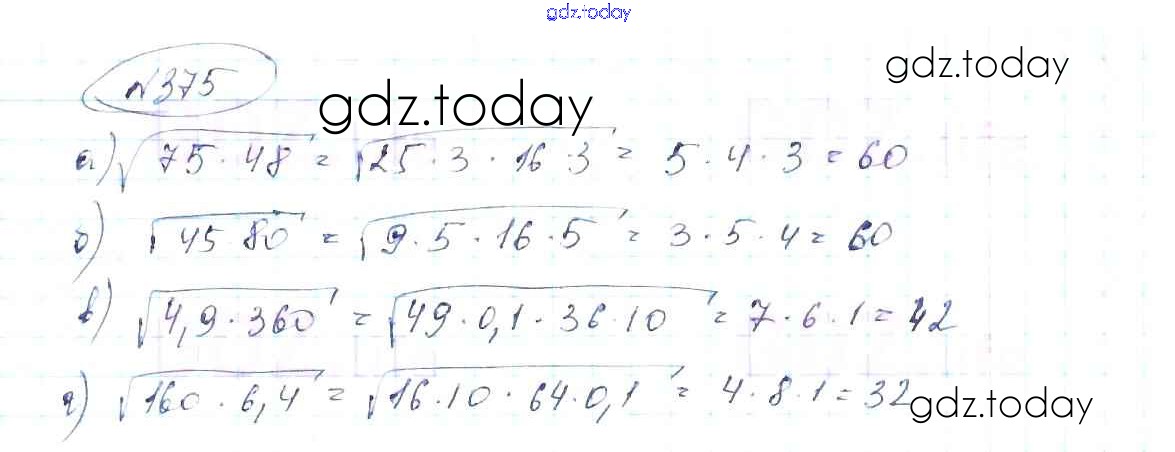 gdz.today
gdz.today
№375
gdz.today
а) √75·48 = √25·3·16·3 = 5·4·3 = 60
б) √45 80 = √9·5·16·5 = 3·5·4 = 60
в) √4,9·360 = √49·0,1·36·10 = 7·6·1 = 42
г) √160·6,4 = √16·10·64·0,1 = 4·8·1 = 32
gdz.today